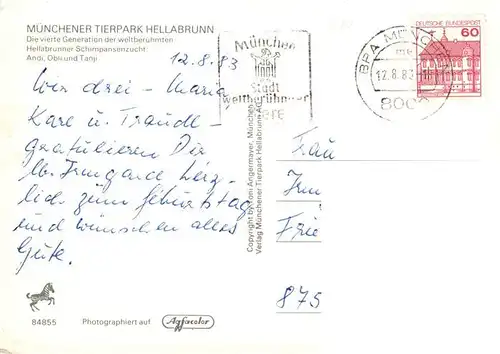 MÜNCHENER TIERPARK HELLABRUNN
Die vierte Generation der weltberühmten
Hellabrunner Schimpansenzucht:
Andi, Obu und Tanji
12.8.83
Wir drei – Maria
Kare u. Traudl –
gratulieren Dir
lb. Irmgard herz-
lich zum Geburtstag
und wünschen alles
Gute.
84855 Photographiert auf Agfacolor
Copyright by Toni Angermayer, München
Verlag Münchener Tierpark Hellabrunn
München
Stadt
weltberühmter
BPA MÜNCH
12.8.83
800
DEUTSCHE BUNDESPOST
60
Frau
Irm
Frie
875